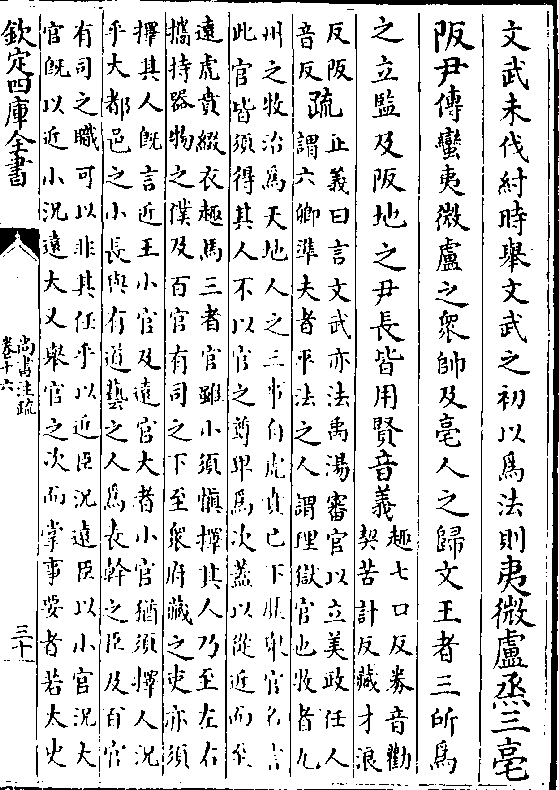 文武未伐紂時舉文武之初以為法則夷微盧烝三亳
阪尹傳蠻夷微盧之衆帥及亳人之歸文王者三所為
之立監及阪地之尹長皆用賢音義
趣七口反劵音勸
契苦計反藏才浪
反阪
音反
疏
正義曰言文武亦法禹湯審官以立美政任人
謂六卿準夫者平法之人謂理獄官也牧者九
州之牧治為天地人之三事自虎賁已下歴舉官名言
此官皆須得其人不以官之尊卑為次蓋以從近而至
逺虎賁綴衣趣馬三者官雖小須慎擇其人乃至左右
攜持器物之僕及百官有司之下至衆府藏之吏亦須
擇其人旣言近王小官及遠官大者小官猶須擇人況
乎大都邑之小長與有道藝之人為表幹之臣及百官
有司之職可以非其任乎以近臣況遠臣以小官況大
官旣以近小況遠大又舉官之次而掌事要者若太史
欽定四庫全書
尚書注疏
卷十六
三十